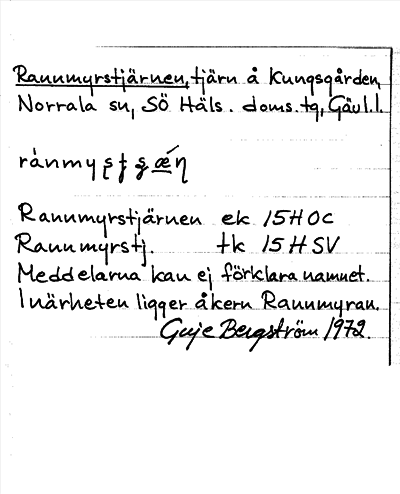 Rannmyrstjärnen, tjärn å Kungsgården,
Norrala sn, SÖ Häls. doms.tg, Gävl.l.
Rannmyrstjärnen ek 15H 0C
Rannmyrstj. tk 15H SV
Meddelarna kan ej förklara namnet.
I närheten ligger åkern Rannmyran.
Guje Bergström 1972.